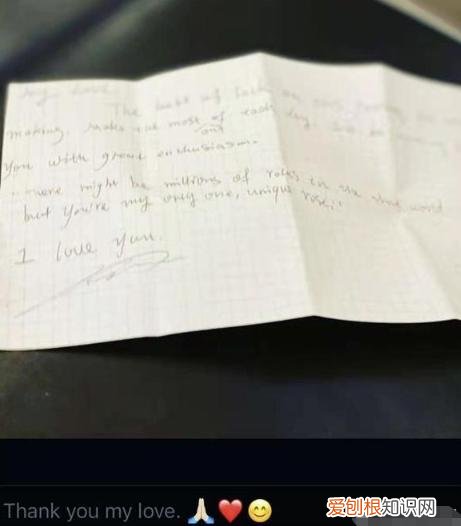 My Love
The best of luck on
making, makes the most of each day.
out
you with great enthusiasm.
"There might be millions of roses in the whole word
but you're my only one, unique rose".
I love you.
Thank you my love. 🙏🏻❤️😊
爱刨根知识网